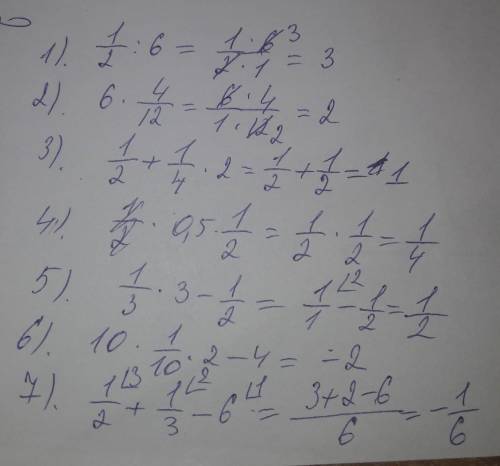 1). 1/2 : 6 = 1·6 3/2·1 = 3
2). 6 · 4/12 = 6·4/1·12 2 = 2
3). 1/2 + 1/4 · 2 = 1/2 + 1/2 = 1
4). 1/2 · 0,5 · 1/2 = 1/2 · 1/2 = 1/4
5). 1/3 · 3 - 1/2 = 1/1 ⌊2 - 1/2 = 1/2
6). 10 · 1/10 · 2 - 4 = -2
7). 1/2 ⌊3 + 1/3 ⌊2 - 6 ⌊1 = 3+2-6/6 = -1/6